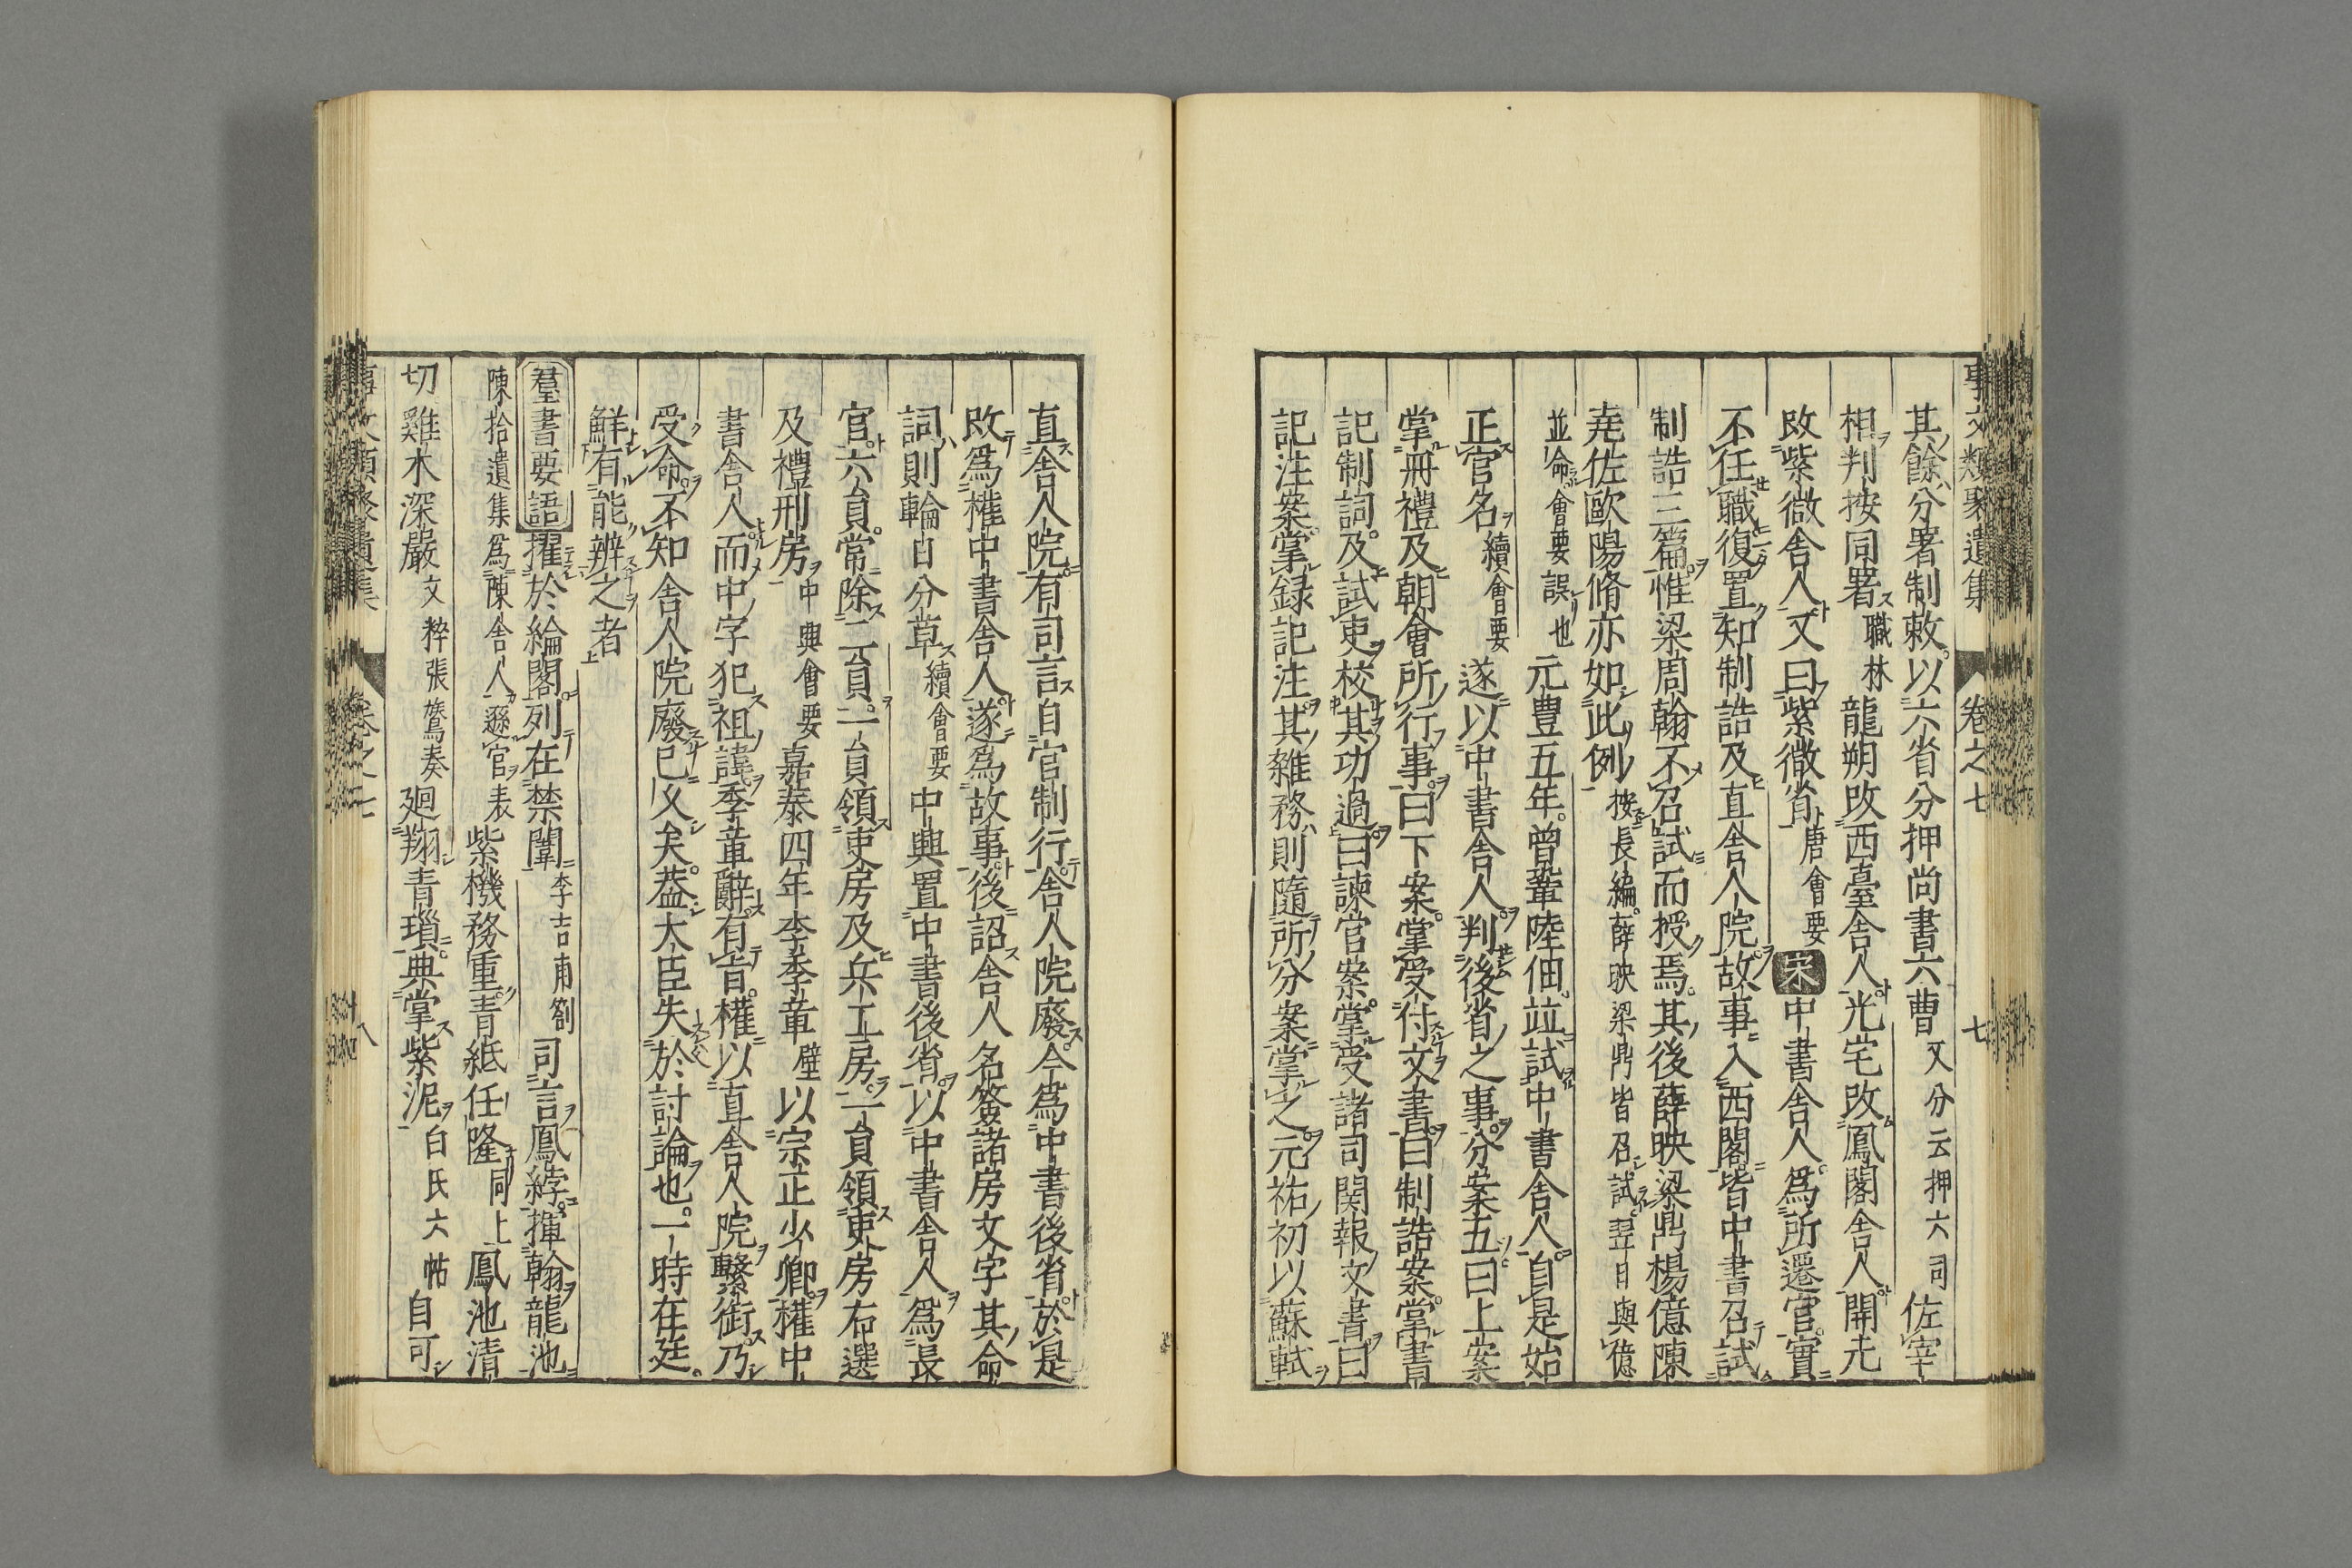 事文類聚遺集 卷之七 七
其餘分署制敕以六省分押尚書六曹又分云押六司佐宰
相判按同署職林龍朔改西臺舍人光宅改鳳閣舍人開元
改紫微舍人又曰紫微省唐會要宋中書舍人爲所遷官實
不任職復置知制誥及直舍人院故事入西閣皆中書召試
制誥三篇惟梁周翰不召試而授焉其後薛映梁鼎楊億陳
堯佐歐陽脩亦如此例按長編薛映梁鼎皆召試翌日與億
並命會要誤也元豊五年曾鞏陸佃竝試中書舍人自是始
正官名續會要遂以中書舍人判後省之事分案五曰上案
掌冊禮及朝會所行事曰下案掌受付文書曰制誥案掌書
記制詞及試吏校其功過曰諫官案掌受諸司関報文書曰
記注案掌録記注其雜務則隨所分案掌之元祐初以蘇軾
直舍人院有司言自官制行舍人院廢今爲中書後省於是
改爲權中書舍人遂爲故事後詔舍人名簽諸房文字其命
詞則輪日分草續會要中興置中書後省以中書舍人爲長
官六員常除二員一員領吏房及兵工房一員領吏房右選
及禮刑房中興會要嘉泰四年李季章壁以宗正少卿權中
書舍人而中字犯祖諱季章辭有旨權以直舍人院繫銜乃
受命不知舍人院廢已久矣葢大臣失於討論也一時在廷
鮮有能辨之者
羣書要語擢於綸閣列在禁闈李吉甫劄司言鳳綍揮翰龍池
陳拾遺集爲陳舍人遜官表紫機務重青紙任隆同上鳳池清
切雞水深嚴文粹張鷟奏廻翔青瑣典掌紫泥白氏六帖自可
卷之七 八